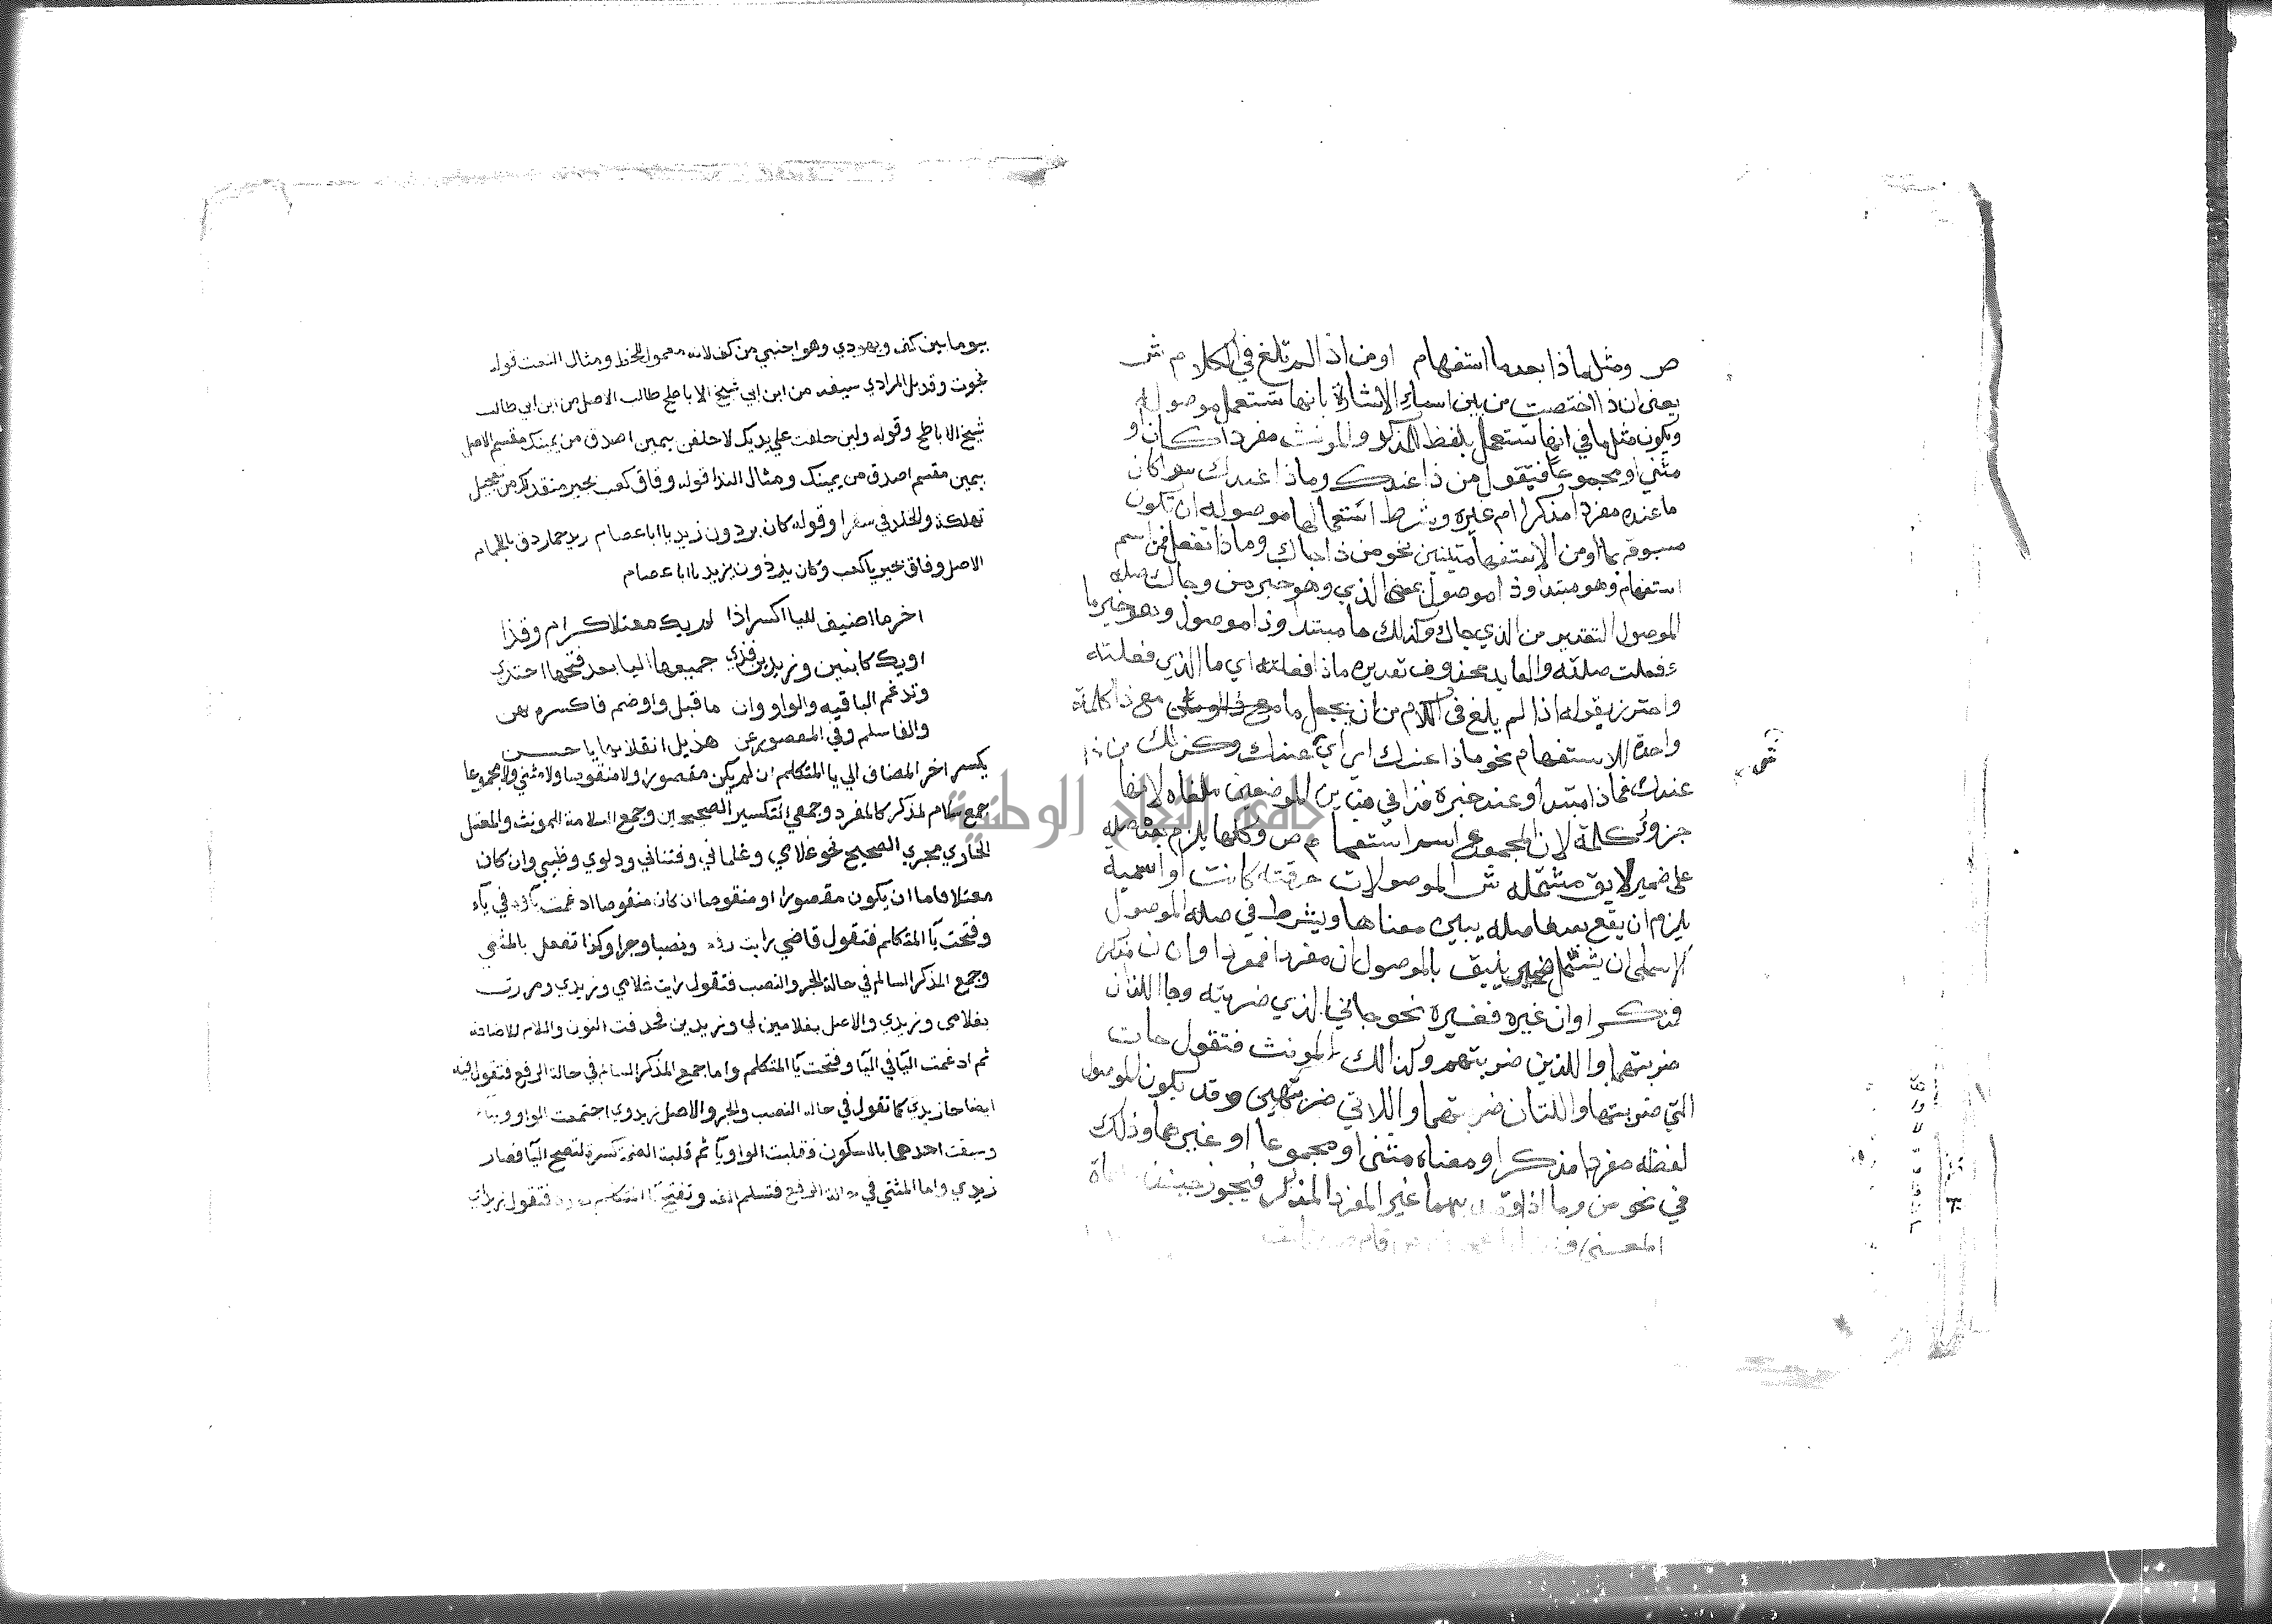 ص ومثل ماذا بعد ما استفهام او من اذا لم تلغ في الكلام ش
يعني ان ذا اختصت من بين اسماء الاشارة بانها تستعمل موصوله
ويكون مثل ما في انها تستعمل بلفظ للمذكر والمونث مفردا كان او
مثني او مجموعا فيقول من ذا عندك وماذا عندك سوا كان
ما عنده مفردا مذكرا ام غيره وشرط استعمالها موصوله ان تكون
مسبوقه بما او من الاستفهاميتين نحو من ذا جاك وماذا تفعل فمن اسم
استفهام وهو مبتدا وذا موصول بمعني الذي وهو خبر من وجاك صله
الموصول التقدير من الذي جاك وكذلك ما مبتدا وذا موصول وهو خبر ما
وفعلت صلته والعايد محذوف تقديره ماذا فعلته اي ما الذي فعلته
واحترز بقوله اذا لم يلغ في الكلام من ان يجعل ما مع ذا كلمة
واحدة للاستفهام نحو ماذا عندك اي اي عندك وكذلك من ذا
عندك فماذا مبتدا وعند خبره فذا في هذين الموضعين ملغاه لانها
جزو كلمة لان المجموع اسم استفهام ص وكلها يلزم بعده صله
علي ضمير لايق مشتمله ش الموصولات حرفيه كانت او اسمية
يلزم ان يقع بعدها صله يبين معناها ويشرط في صله الموصول
الاسمي ان يشتمل ضمير يليق بالموصول ان مفردا فمفردا وان مذكر
فمذكرا وان غيره فغيره نحو جاني الذي ضربته وجا اللذان
ضربتهما والذين ضربتهم وكذالك المونث فتقول جات
التي ضربتها واللتان ضربتهما واللاتي ضربتهن وقد يكون الموصول
لفظه مفردا مذكرا ومعناه مثني او مجموعا او غيرهما وذلك
في نحو من وما اذا بهما غير المفرد المذكر فيجوز
المعني
بيوما بين كف ويهودي وهو اجنبي من كف لانه معمول للخط ومثال النعت قوله
نجوت وقد بل المرادي سيفه من ابن ابي شيخ الاباطح طالب الاصل من ابن ابي طالب
شيخ الاباطح وقوله ولين حلفت علي يديك لاحلفن بيمين اصدق من يمينك مقسم الاصل
بيمين مقسم اصدق من يمينك ومثال الندا قوله وفاق كعب بجير منقذ لك من تعجيل
تهلكة والخلد في سقرا وقوله كان برذون زيد يا ابا عصام زيد حمار دق باللجام
الاصل وفاق بجير يا كعب وكان برذون يزيد يا ابا عصام
اخر ما اضيف لليا اكسر اذا لم يك معتلا كرام وقذا
او يك كابنين وزيدين فذي جميعها اليا بعد فتحها احتذي
وتدغم اليا فيه والواو وان ما قبل واو ضم فاكسره يهن
والفا سلم وفي المقصور عن هذيل انقلابها يا حسن
يكسر اخر المضاف الي يا المتكلم ان لم يكن مقصورا ولا منقوصا ولا مثني ولا مجموعا
جمع سلام لمذكر كالمفرد وجمعي التكسير الصحيحين وجمع السلامة للمونث والمعتل
الجاري مجري الصحيح نحو غلامي وغلماني وفتياتي ودلوي وظبيي وان كان
معتلا فاما ان يكون مقصورا او منقوصا ان كان منقوصا ادغمت ياوه في ياء
وفتحت يا المتكلم فتقول قاضي رايت رفعا ونصبا وجرا وكذا تفعل بالمثني
وجمع المذكر السالم في حالة الجر والنصب فتقول رايت غلامي وزيدي ومررت
بغلامي وزيدي والاصل بغلامين لي وزيدين فحذفت النون واللام للاضافه
ثم ادغمت اليا في اليا وفتحت يا المتكلم واما جمع المذكر السالم في حالة الرفع فتقول فيه
ايضا جا زيدي كما تقول في حاله النصب والجر والاصل زيدوي اجتمعت الواو واليا
وسبقت احدهما بالسكون فقلبت الواو يا ثم قلبت الضمة كسرة لتصح اليا فصار
زيدي واما المثني في حالة الرفع فتسلم الفه وتفتح يا المتكلم بعده فتقول زيداي
جامعة النجاح الوطنية